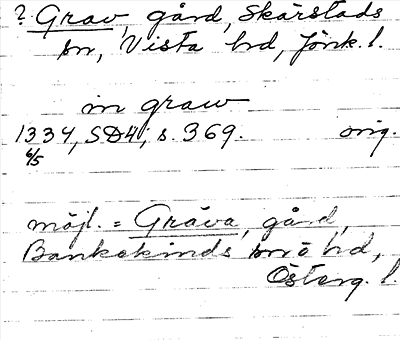 ? Grav, gård, Skärstads
sn, Vista hd, Jönk. l.
in graw
1334, SD4, s. 369. orig.
6/5
möjl. = Gråva, gård,
Bankekinds sn o hd,
Österg. l.